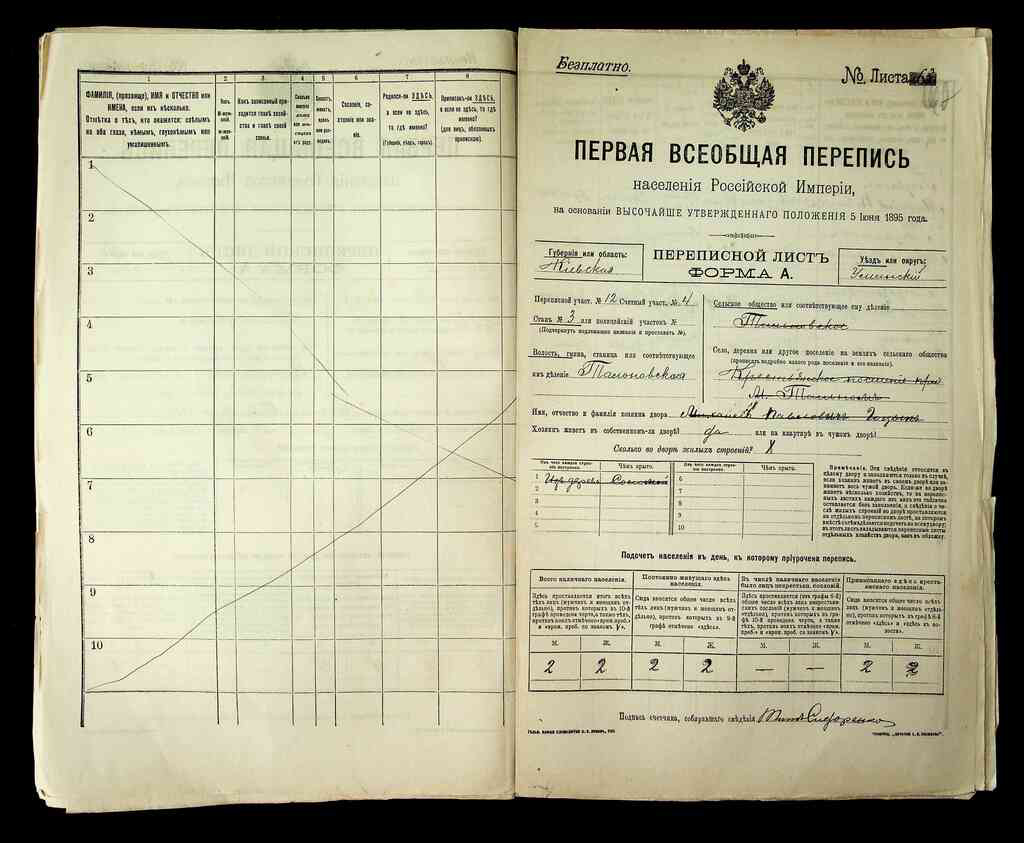 1 2 3 4 5 6 7 8
ФАМИЛІЯ, (прозвище), ИМЯ и ОТЧЕСТВО или
ИМЕНА, если ихъ нѣсколько.
Отмѣтка о тѣхъ, кто окажется: слѣпымъ
на оба глаза, нѣмымъ, глухонѣмымъ или
умалишеннымъ.
Полъ.
М-муж-
ской.
Ж-жен-
скій.
Какъ записанный при-
ходится главѣ хозяй-
ства и главѣ своей
семьи.
Сколько
минуло
лѣтъ
или мѣс-
яцевъ
отъ роду.
Сословіе, со-
стояніе или зва-
ніе.
Родился-ли ЗДѢСЬ,
а если не здѣсь,
то гдѣ именно?
(Губернія, уѣздъ, городъ).
Приписанъ-ли ЗДѢСЬ,
а если не здѣсь, то гдѣ
именно?
(для лицъ, обязанныхъ
припискою).
1
2
3
4
5
6
7
8
9
10
Безплатно.
№ Листа
ПЕРВАЯ ВСЕОБЩАЯ ПЕРЕПИСЬ
населенія Россійской Имперіи,
на основаніи ВЫСОЧАЙШЕ УТВЕРЖДЕННАГО ПОЛОЖЕНІЯ 5 Іюня 1895 года.
Губернія или область:
Кіевская
ПЕРЕПИСНОЙ ЛИСТЪ
ФОРМА А.
Уѣздъ или округъ:
Уманскій
Переписной участ. № 12 Счетный участ. № 4
Станъ № 3 или полицейскій участокъ №
(Подчеркнуть подлежащее названіе и проставить №).
Волость, гмина, станица или соотвѣтствующее
имъ дѣленіе Тальновская
Сельское общество или соотвѣтствующее ему дѣленіе
Тальновское
Село, деревня или другое поселеніе на земляхъ сельскаго общества
(прописать подробно какого рода поселеніе и его названіе).
Крестьянское поселеніе при
м. Тальномъ
Имя, отчество и фамилія хозяина двора Павловичъ
Хозяинъ живетъ въ собственномъ-ли дворѣ? да или на квартирѣ въ чужомъ дворѣ?
Сколько во дворѣ жилыхъ строеній?
Изъ чего каждое строе-
ніе построено. Чѣмъ крыто. Изъ чего каждое строе-
ніе построено. Чѣмъ крыто.
1 Изъ дерева Соломой 6
2 7
3 8
4 9
5 10
Примѣчаніе. Эти свѣдѣнія относятся къ
цѣлому двору и заполняются только въ случаѣ,
если хозяинъ живетъ въ своемъ дворѣ или за-
нимаетъ весь чужой дворъ. Если-же во дворѣ
живетъ нѣсколько хозяйствъ, то на перепис-
ныхъ листахъ каждаго изъ нихъ эта табличка
оставляется безъ заполненія, а свѣдѣнія о чи-
слѣ жилыхъ строеній во дворѣ проставляются
на отдѣльномъ переписномъ листѣ, на которомъ
вмѣстѣ съ тѣмъ дѣлается подсчетъ по всему двору;
въ этотъ листъ вкладываются переписные листы
отдѣльныхъ хозяйствъ двора, какъ въ обложку.
Подсчетъ населенія въ день, къ которому пріурочена перепись.
Всего наличнаго населенія. Постоянно живущаго здѣсь
населенія. Въ числѣ наличнаго населенія
было лицъ некрестьян. сословій. Приписаннаго здѣсь крестъ-
янскаго населенія.
Здѣсь проставляется итогъ всѣхъ
тѣхъ лицъ (мужчинъ и женщинъ от-
дѣльно), противъ которыхъ въ 10-й
графѣ проведена черта, а также тѣхъ,
противъ коихъ отмѣчено «врем. преб.»
и «врем. преб. со знакомъ V».
Сюда вносится общее число всѣхъ
тѣхъ лицъ (мужчинъ и женщинъ от-
дѣльно), противъ которыхъ въ 9-й
графѣ отмѣчено «здѣсь».
Здѣсь проставляется (изъ графы 6-й)
общее число всѣхъ лицъ некрестьян-
скихъ сословій (мужчинъ и женщинъ от-
дѣльно), противъ которыхъ въ гра-
фѣ 10-й проведена черта, а также
тѣхъ, противъ коихъ отмѣчено «врем.
преб.» и «врем. преб. со знакомъ V».
Сюда вносится общее число всѣхъ
тѣхъ лицъ (мужчинъ и женщинъ отдѣль-
но), противъ которыхъ въ графѣ 8-й
отмѣчено «здѣсь» и «здѣсь въ во-
лости».
М. Ж. М. Ж. М. Ж. М. Ж.
2 2 2 2 — — 2 2
Подпись счетчика, собиравшаго свѣдѣнія Сидоренко